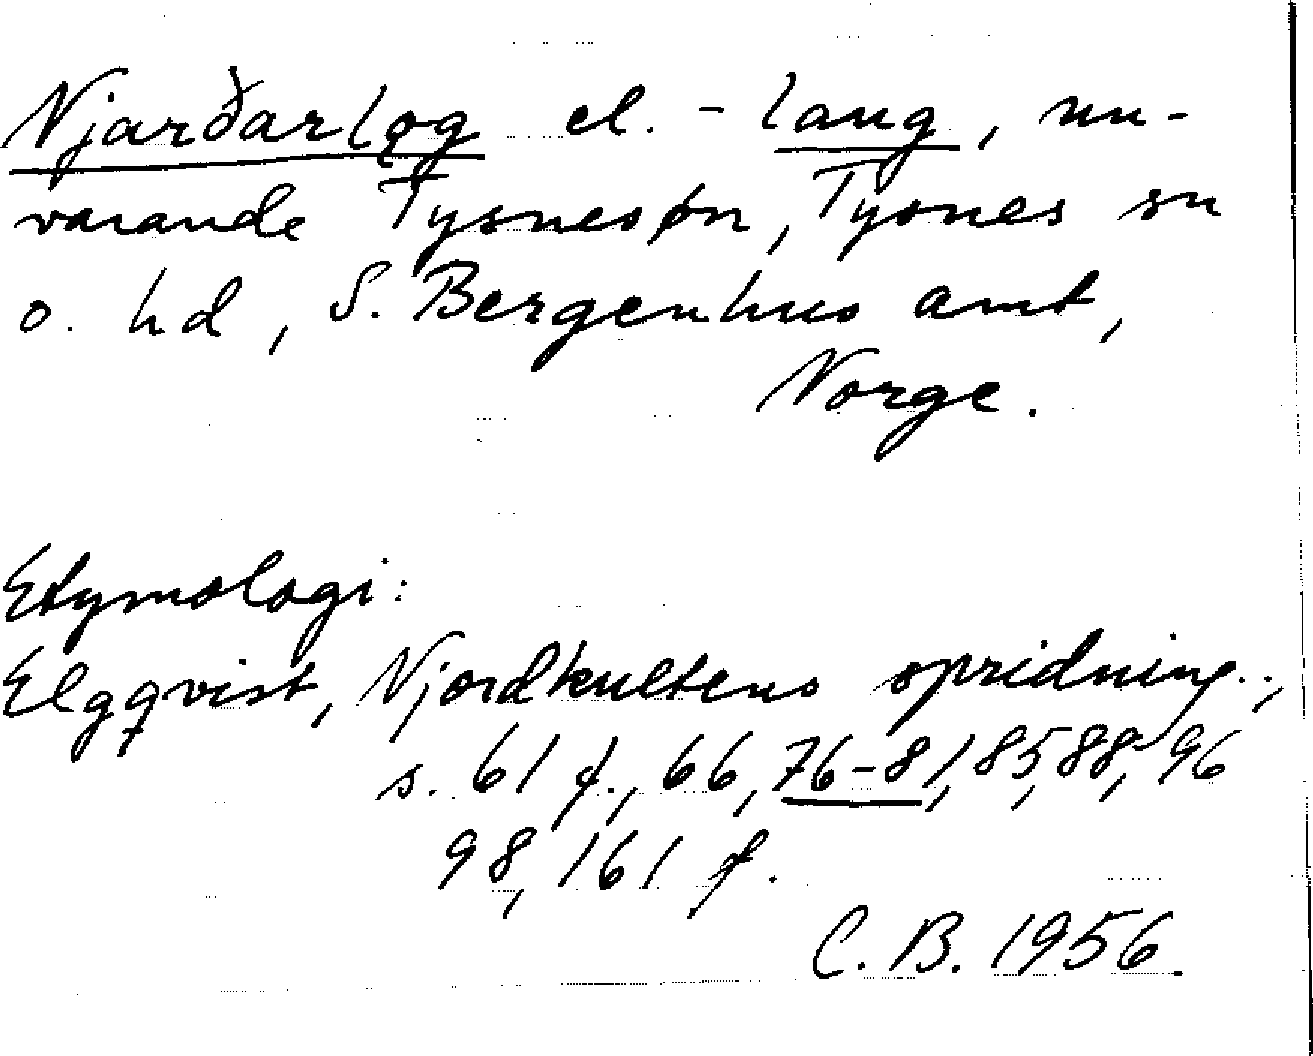 Njarðarlǫg el. - laug, nu-
varande Tysnesøn, Tysnes sn
o. hd, S. Bergenhus amt,
Norge.
Etymologi:
Elgqvist, Njordkultens spridning..,
s. 61 f., 66, 76-81, 85, 88, 96
98, 161 f.
C. B. 1956.